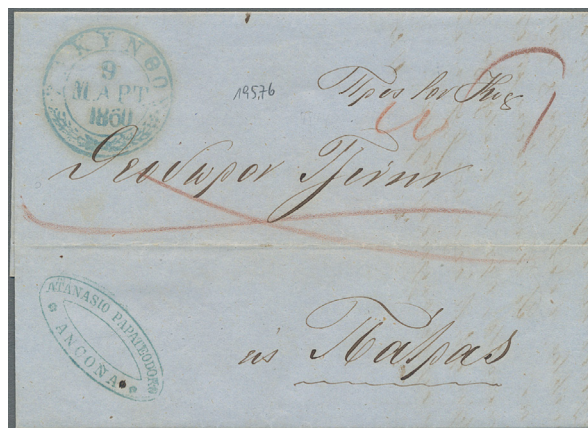 ΖΑΚΥΝΘΟΣ
9
ΜΑΡΤ
1860
19576
Πρὸς τὸν Κύρ
Θεόδωρον Τζίνην
ATANASIO PAPATEODORW
ANCONA
εἰς Πάτρας